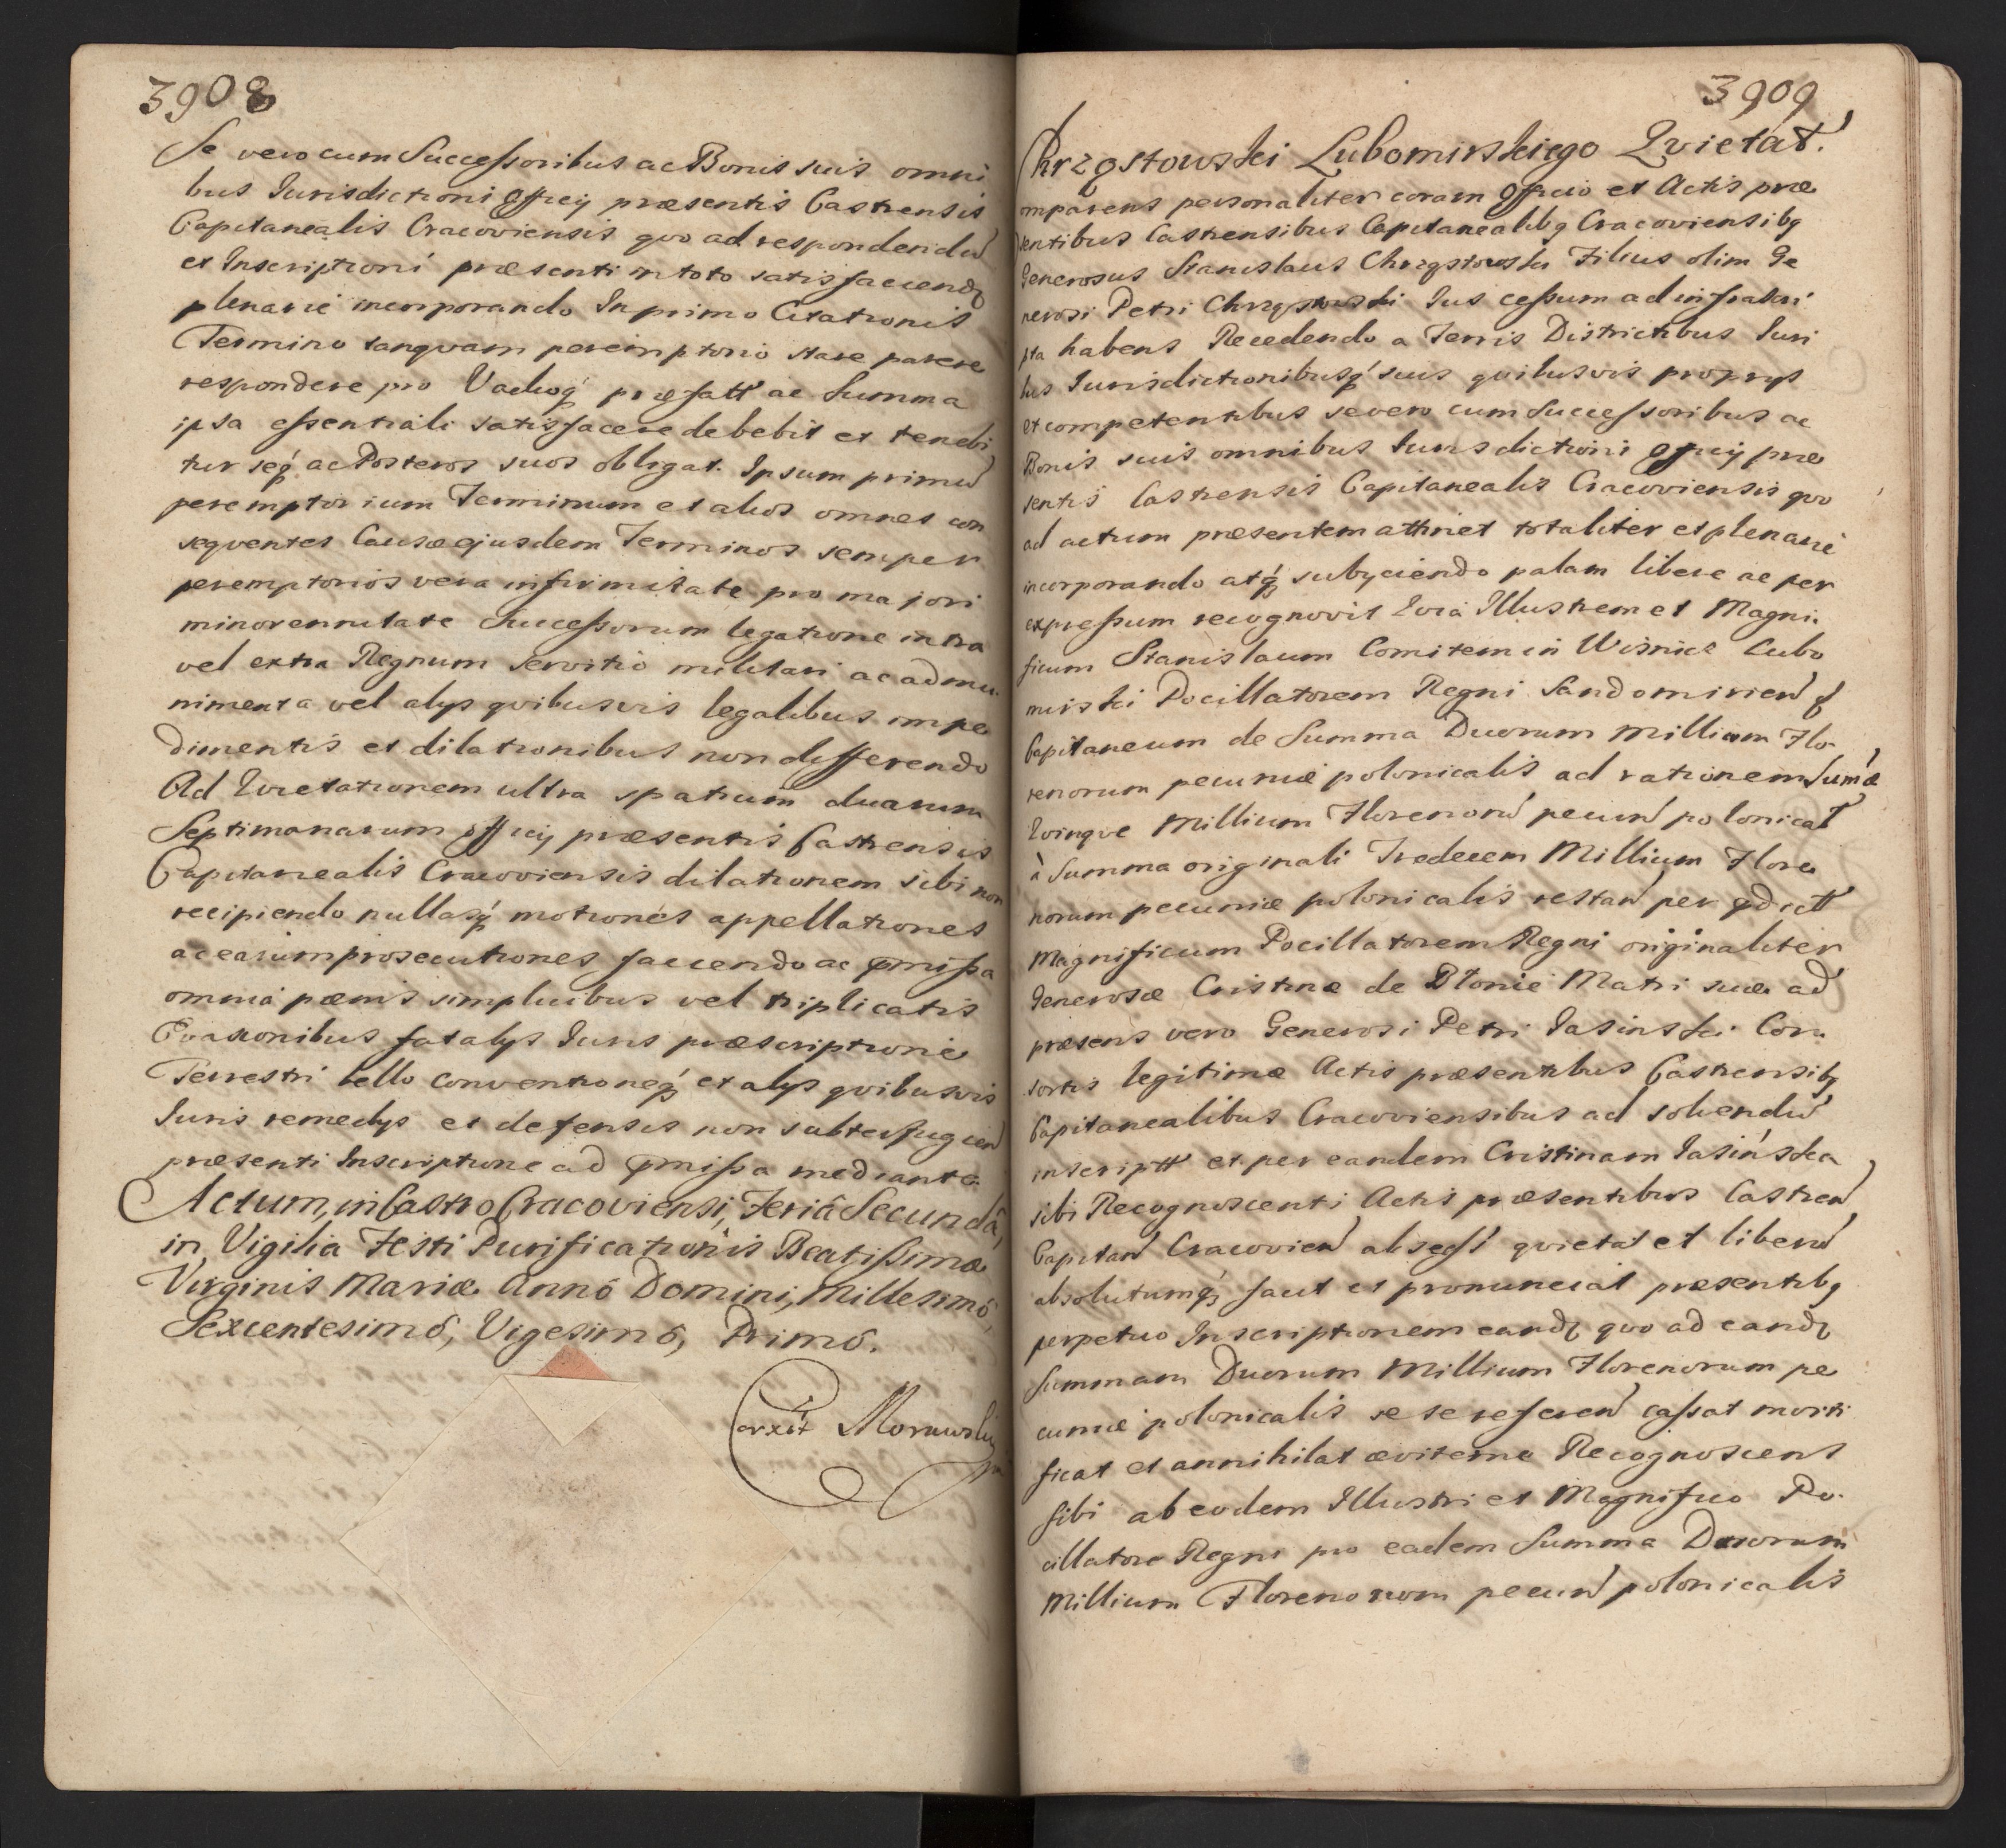 3908
Se vero cum Successoribus ac Bonis suis omni
bus Jurisdictioni Officij præsentis Castrensis
Capitanealis Cracoviensis quo ad respondendũ
et Inscriptioni præsenti in toto satisfaciendũ
plenarie incorporando In primo Citationis
Termino tanquam peremptorio stare parere
respondere pro Vadioq; præfatt ac Summa
ipsa essentiali satisfacere debebit et tenebi
tur seq; ac Posteros suos obligat. Ipsum primũ
peremptorium Terminum et alios omnes con
sequentes Causæ ejusdem Terminos semper
peremptorios vera infirmitate pro majori
minorennitate Successorum legatione intra
vel extra Regnum servitio militari ac ad mu
nimenta vel alijs quibusvis legalibus impe
dimentis et dilationibus non differendo
Ad Quietationem ultra spatium duarum
Septimanarum officij præsentis Castrensis
Capitanealis Cracoviensis dilationem sibi non
recipiendo nullasq; motiones appellationes
ac earum prosecutiones faciendo ac præmissa
omnia pœnis simplicibus vel triplicatis
Evasionibus fatalijs Juris præscriptione
Terrestri bello conventioneq; et alijs quibusvis
Juris remedijs et defensis non subterfugien
præsenti Inscriptione ad præmissa mediante.
Actum, in Castro Cracoviensi, Feriâ Secundâ,
in Vigilia Festi Purificationis Beatissimæ
Virginis Mariæ Annô Domini, Millesimô,
Sexcentesimô, Vigesimô, Primô.
Corxit Morawski
3909
Chrząstowski Lubomirskiego Quietat.
omparens personaliter coram Officio et Actis præ
sentibus Castrensibus Capitanealibq Cracoviensibq
Generosus Stanislaus Chrząstowski Filius olim Ge
nerosi Petri Chrząstowski Jus cessum ad infrascri
pta habens Recedendo a Terris Districtibus Juri
bus Jurisdictionibusq; suis quibusvis proprijs
et competentibus se vero cum Successoribus ac
Bonis suis omnibus Jurisdictioni officij præ
sentis Castrensis Capitanealis Cracoviensis quo
ad actum præsentem attinet totaliter et plenarie
incorporando atq; subijciendo palam libere ac per
expressum recognovit Quia Illustrem et Magni
ficum Stanislaum Comitem in Wisnicz Lubo
mirski Pocillatorem Regni Sandomirien &
Capitaneum de Summa Duorum Millium Flo
renorum pecuniæ polonicalis ad rationem Sum̃æ
Quinque Millium Florenorũ pecuñ polonicat
à Summa originali Tredecem Millium Flore
norum pecuniæ polonicalis restañ per prædictt
Magnificum Pocillatorem Regni originaliter
Generosæ Cristinæ de Błonie Matri suæ ad
præsens vero Generosi Petri Jasinski Con
sortis legitimæ Actis præsentibus Castrensibq
Capitanealibus Cracoviensibus ad solvendũ
inscriptt et per eandem Cristinam Jasińska
sibi Recognoscenti Actis præsentibus Castreñ
Capitañ Cracovieñ absesse quietat et liberũ
absolutumq; facit et pronunciat præsentibq
perpetuo Inscriptionem eandẽ quo ad eandẽ
Summam Duorum Millium Florenorum pe
cuniæ polonicalis se se refereñ cassat morti
ficat et annihilat æviterne Recognoscens
sibi ab eodem Illustri et Magnifico Po
cillatore Regni pro eadem Summa Duorum
Millium Florenorum pecuñ polonicalis